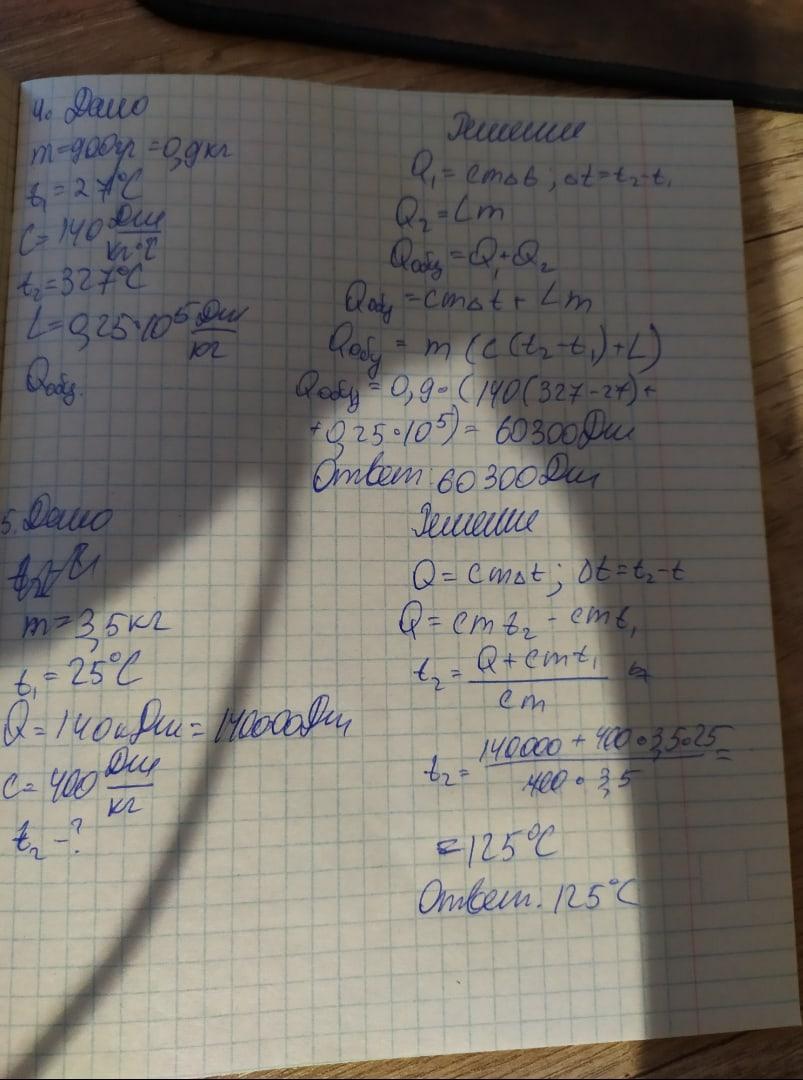 4. Дано
m=900гр=0,9кг
t₁=27°C
C=140 Дж/кг·°C
t₂=327°C
L=0,25·10⁵ Дж/кг
Qобщ.
Решение
Q₁=cmΔt; Δt=t₂-t₁
Q₂=Lm
Qобщ=Q₁+Q₂
Qобщ=cmΔt+Lm
Qобщ=m(c(t₂-t₁)+L)
Qобщ=0,9·(140(327-27)+
+0,25·10⁵)=60300Дж
Ответ: 60300Дж
5. Дано
m=3,5кг
t₁=25°C
Q=140кДж=140000Дж
C=400 Дж/кг
t₂-?
Решение
Q=cmΔt; Δt=t₂-t
Q=cmt₂-cmt₁
t₂=Q+cmt₁/cm
t₂=140000+400·3,5·25/400·3,5=
=125°C
Ответ. 125°C